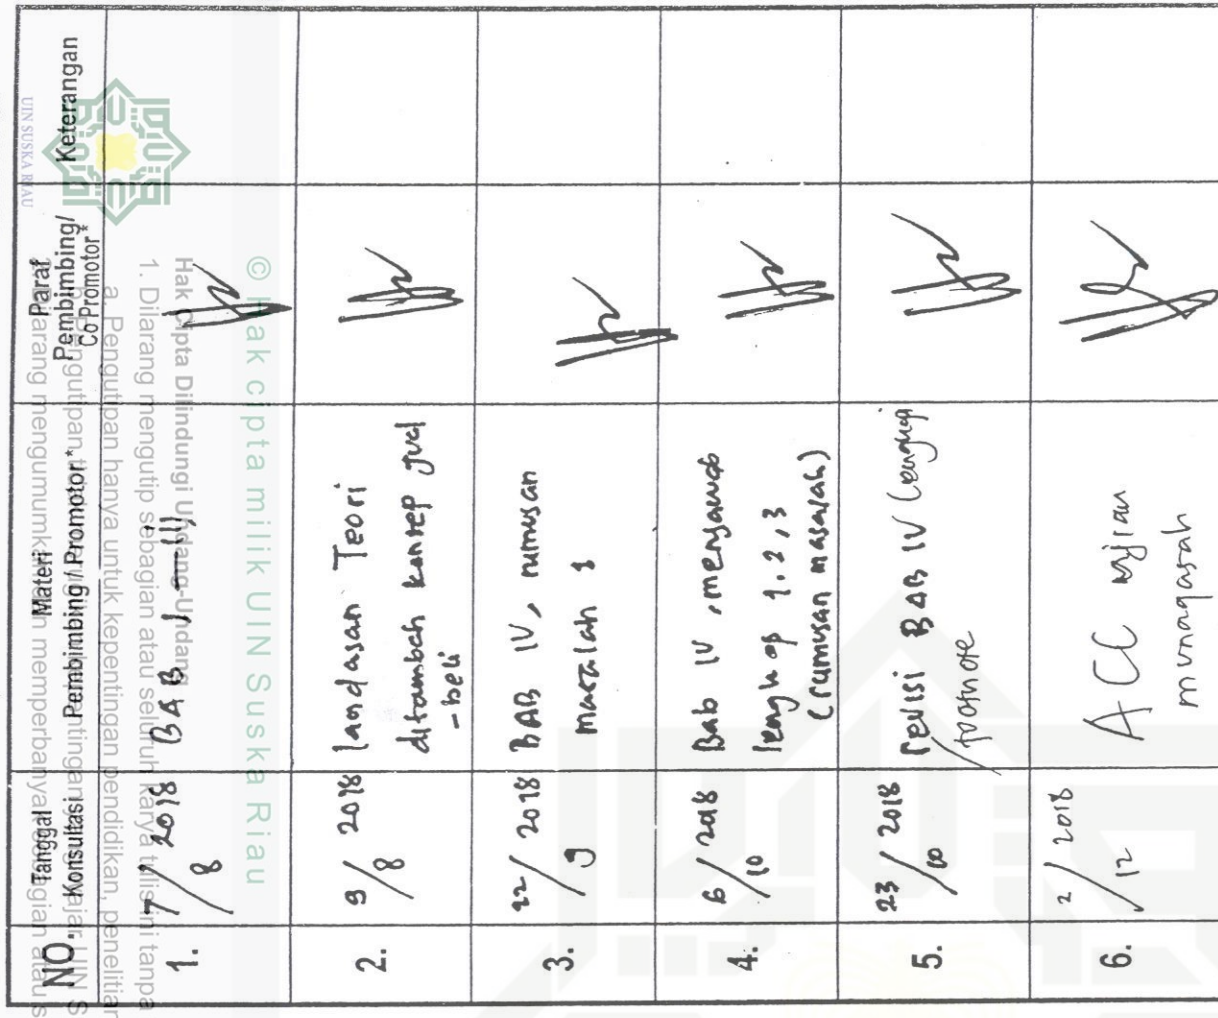 NO.
Tanggal
Konsultasi
Materi
Pembimbing / Promotor*
Paraf
Pembimbing/
Co Promotor*
Keterangan
1.
7/8 2018
BAB I - III
2.
9/8 2018
Landasan Teori
ditambah konsep jual
-beli
3.
22/9 2018
BAB IV, rumusan
masalah 1
4.
6/10 2018
Bab IV, menjawab
lengkap 1.2,3
(rumusan masalah)
5.
23/10 2018
revisi BAB IV Lengkapi
footnote
6.
2/12 2018
ACC ujian
munaqasah
UIN SUSKA RIAU
© Hak cipta milik UIN Suska Riau
Hak Cipta Dilindungi Undang-Undang
1. Dilarang mengutip sebagian atau seluruh karya tulis ini tanpa
a. Pengutipan hanya untuk kepentingan pendidikan, penelitian